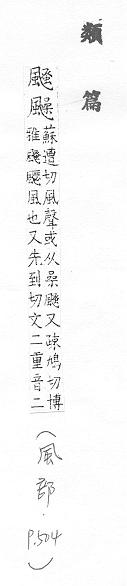 類篇
颾
蘇遭切風聲或从喿颾又疎鳩切博
雅颾飂風也又先到切文二重音二
(風部.P.504)